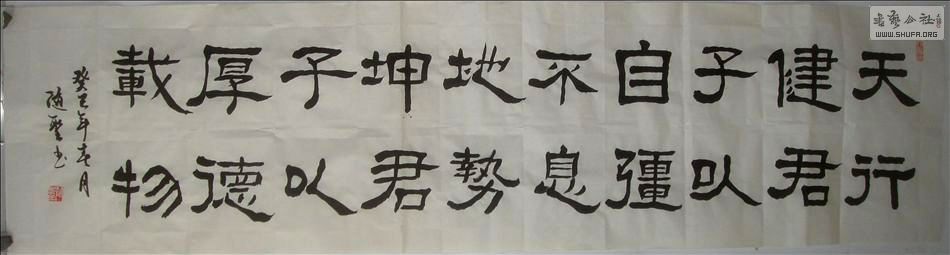 天行
健君
子以
自彊
不息
地勢
坤君
子以
厚德
載物
癸巳年春月
書藝公社
WWW.SHUFA.ORG